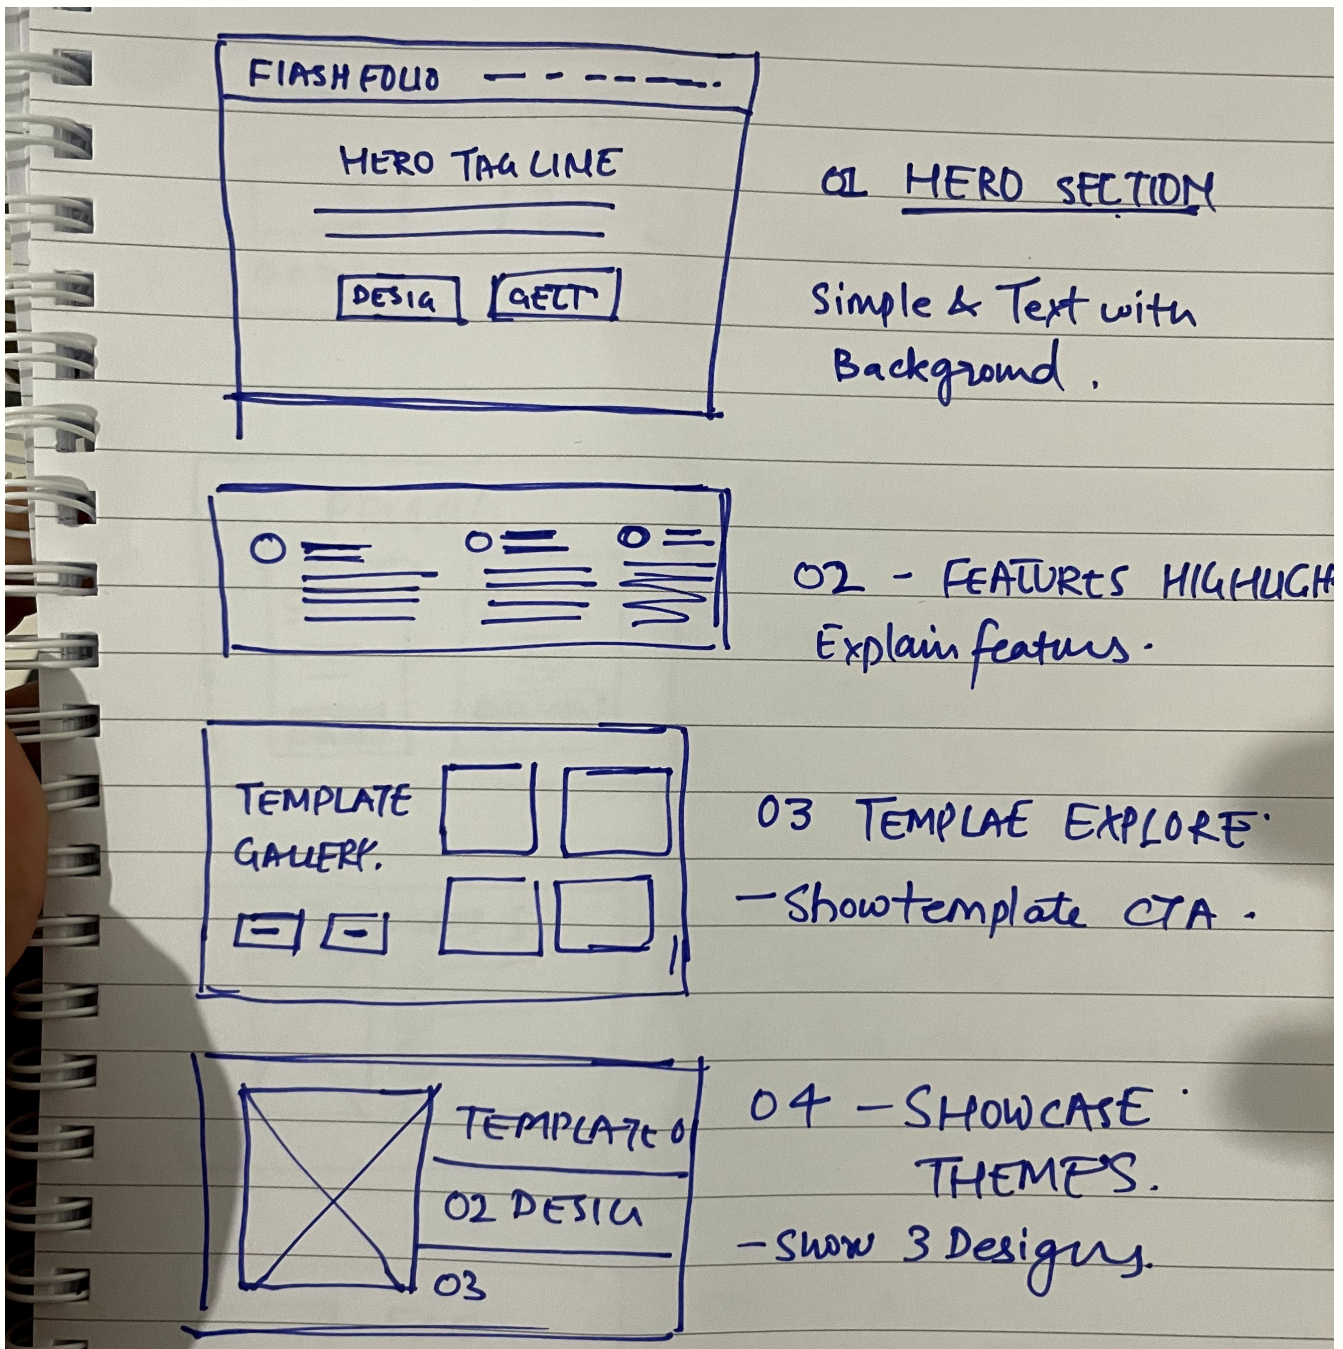 FLASHFOLIO
HERO TAG LINE
DESIG
GETT
01 HERO SECTION
Simple & Text with
Background.
02 - FEATURES HIGHLIGH
Explain featurs.
TEMPLATE
GALLERY.
03 TEMPLAE EXPLORE
- Show template CTA.
TEMPLATE 0
02 DESIG
03
04 - SHOWCASE
THEMES.
- Show 3 Designs.